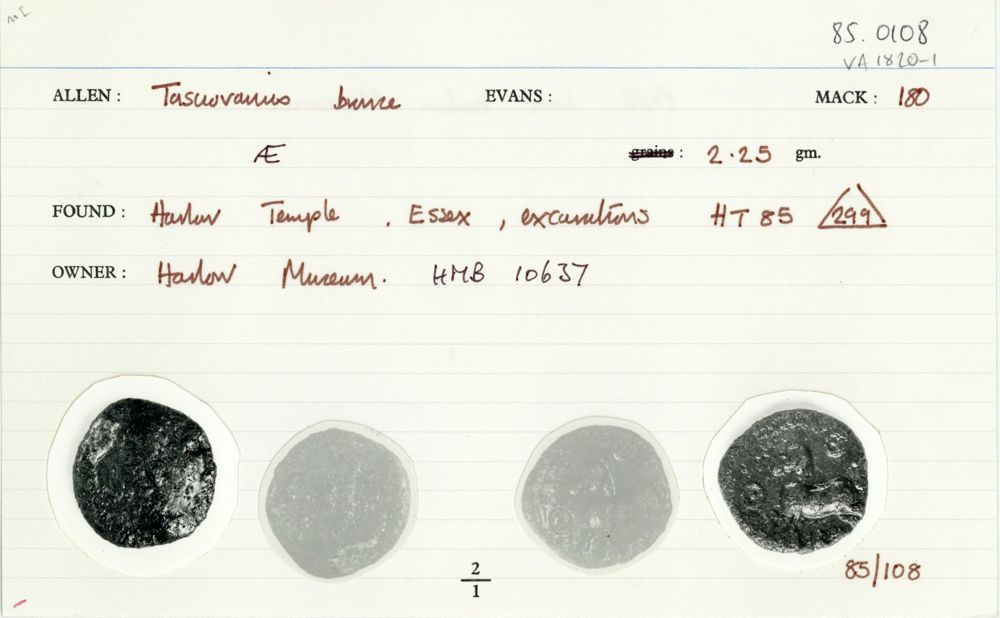 85.0108
VA 1820-1
ALLEN : Tasciovanus bronze EVANS : MACK : 180
Æ grains : 2.25 gm.
FOUND : Harlow Temple . Essex , excavations HT 85 299
OWNER : Harlow Museum. HMB 10637
2
1
85/108